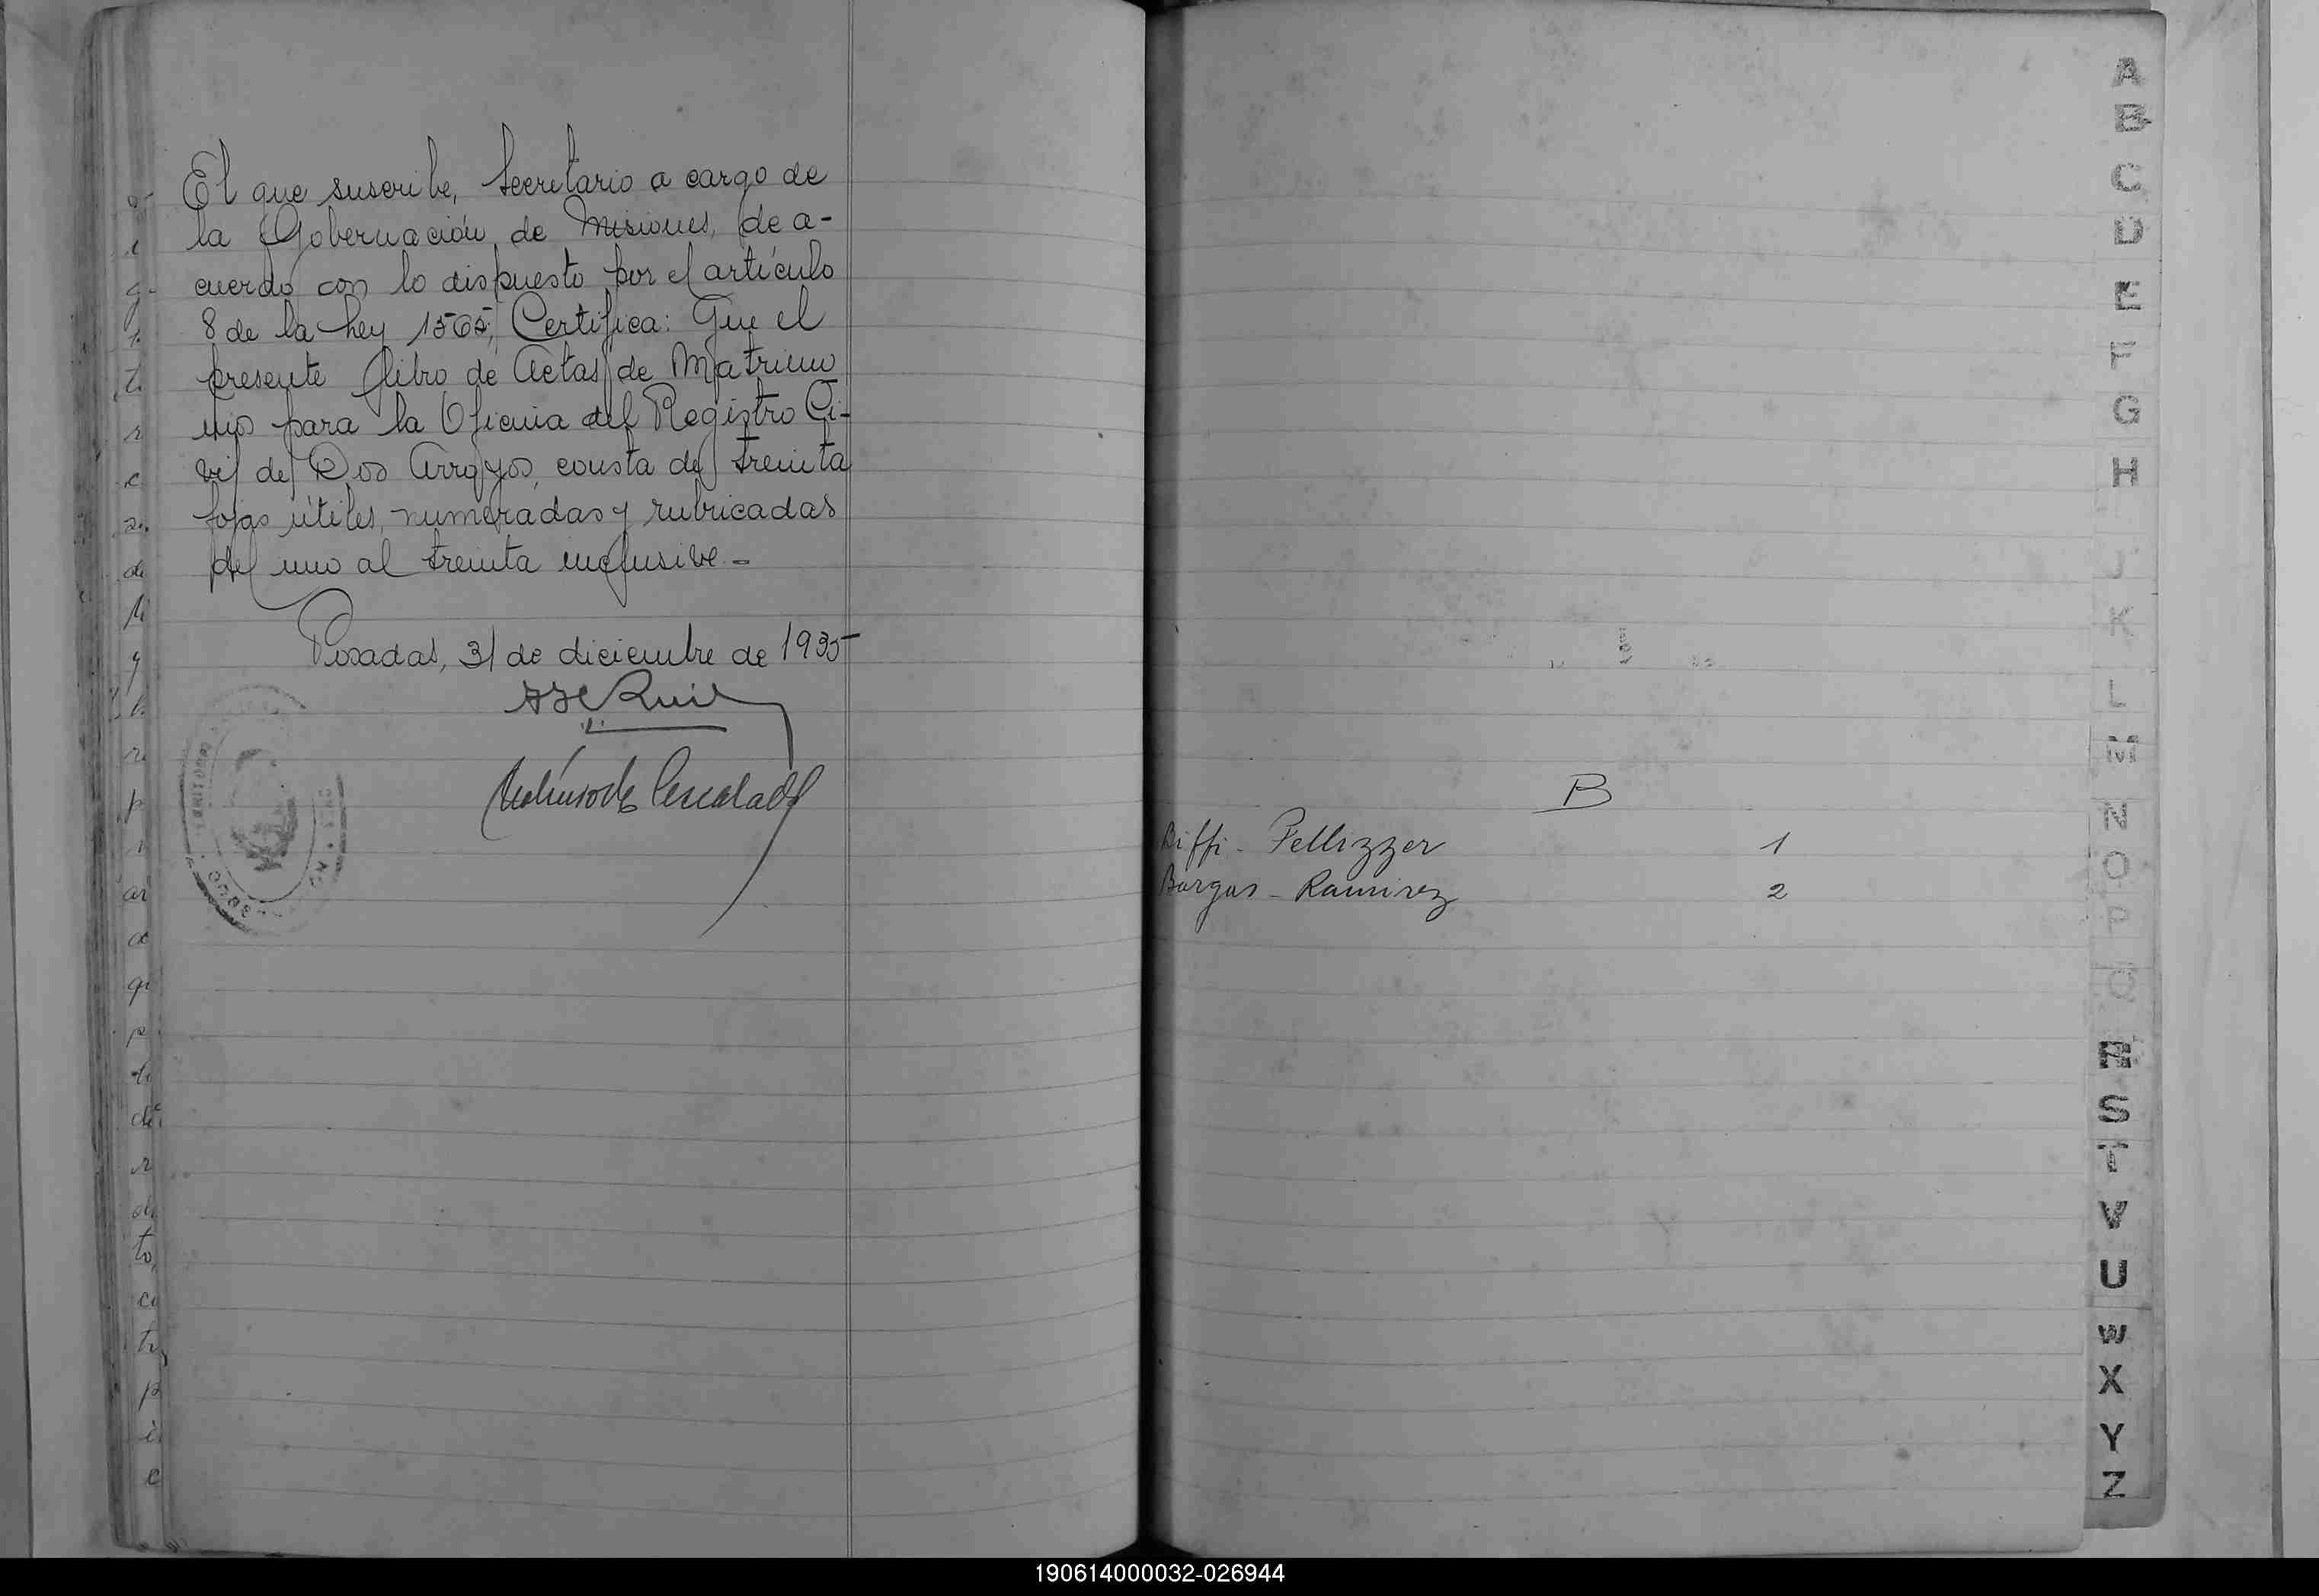 El que suscribe, Secretario a cargo de
la Gobernación de Misiones, de a-
cuerdo con lo dispuesto por el artículo
8 de la Ley 1565, Certifica: Que el
presente Libro de Actas de Matrimo
nios para la Oficina del Registro Ci-
vil de Dos Arroyos, consta de treinta
fojas útiles, numeradas y rubricadas
del uno al treinta inclusive.-
Posadas, 31 de diciembre de 1935
Ruiz
B
Biffi - Pellizzer 1
Bargas - Ramirez 2
A
B
C
D
E
F
G
H
J
K
L
M
N
O
P
Q
R
S
T
V
U
W
X
Y
Z
190614000032-026944